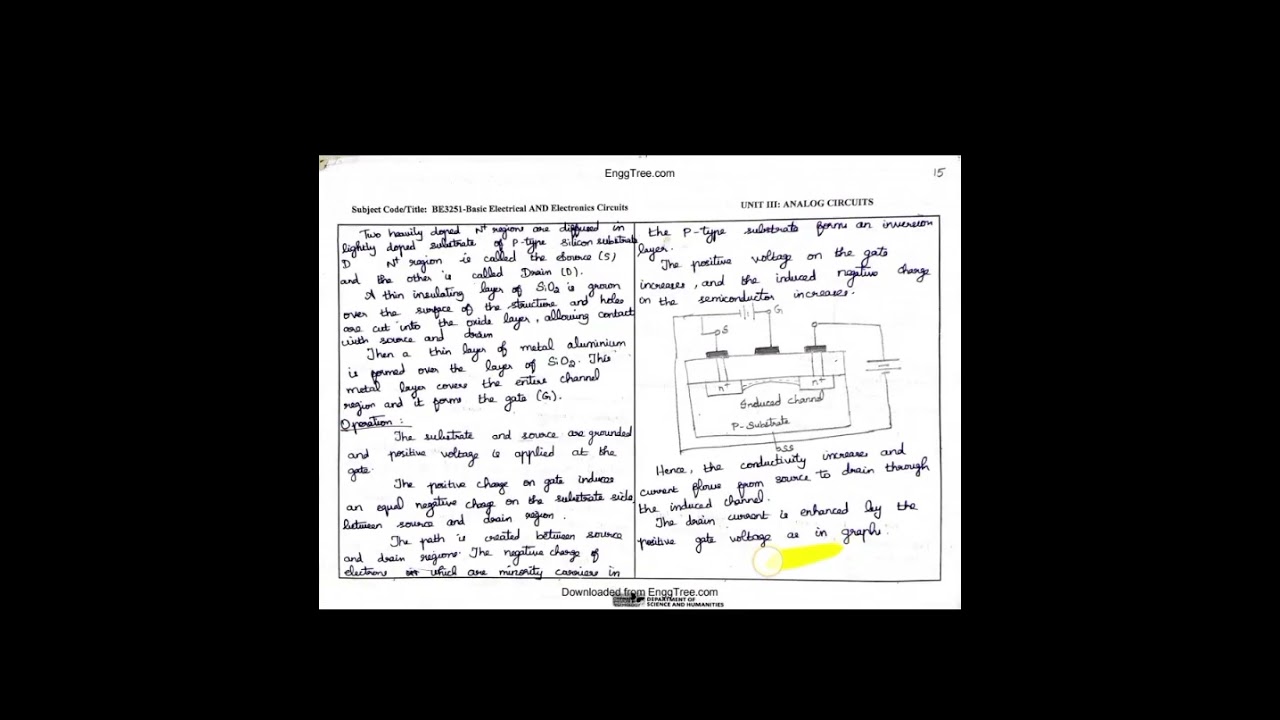 EnggTree.com
15
Subject Code/Title: BE3251-Basic Electrical AND Electronics Circuits
UNIT III: ANALOG CIRCUITS
Two heavily doped N+ regions are diffused in
lightly doped substrate of P-type Silicon substrate
D N+ region is called the Source (S)
and the other is called Drain (D).
A thin insulating layer of SiO2 is grown
over the surface of the structure and holes
are cut into the oxide layer, allowing contact
with source and drain
Then a thin layer of metal aluminium
is formed over the layer of SiO2. This
metal layer covers the entire channel
region and it forms the gate (G).
Operation :
The substrate and source are grounded
and positive voltage is applied at the
gate.
The positive charge on gate induces
an equal negative charge on the substrate side
between source and drain region.
The path is created between source
and drain regions. The negative charge of
electrons which are minority carriers in
the P-type substrate forms an inversion
layer.
The positive voltage on the gate
increases, and the induced negative charge
on the semiconductor increases.
G
S
n+
n+
Induced channel
P-Substrate
SS
Hence, the conductivity increase and
current flows from source to drain through
the induced channel.
The drain current is enhanced by the
positive gate voltage as in graph.
Downloaded from EnggTree.com
DEPARTMENT OF
SCIENCE AND HUMANITIES